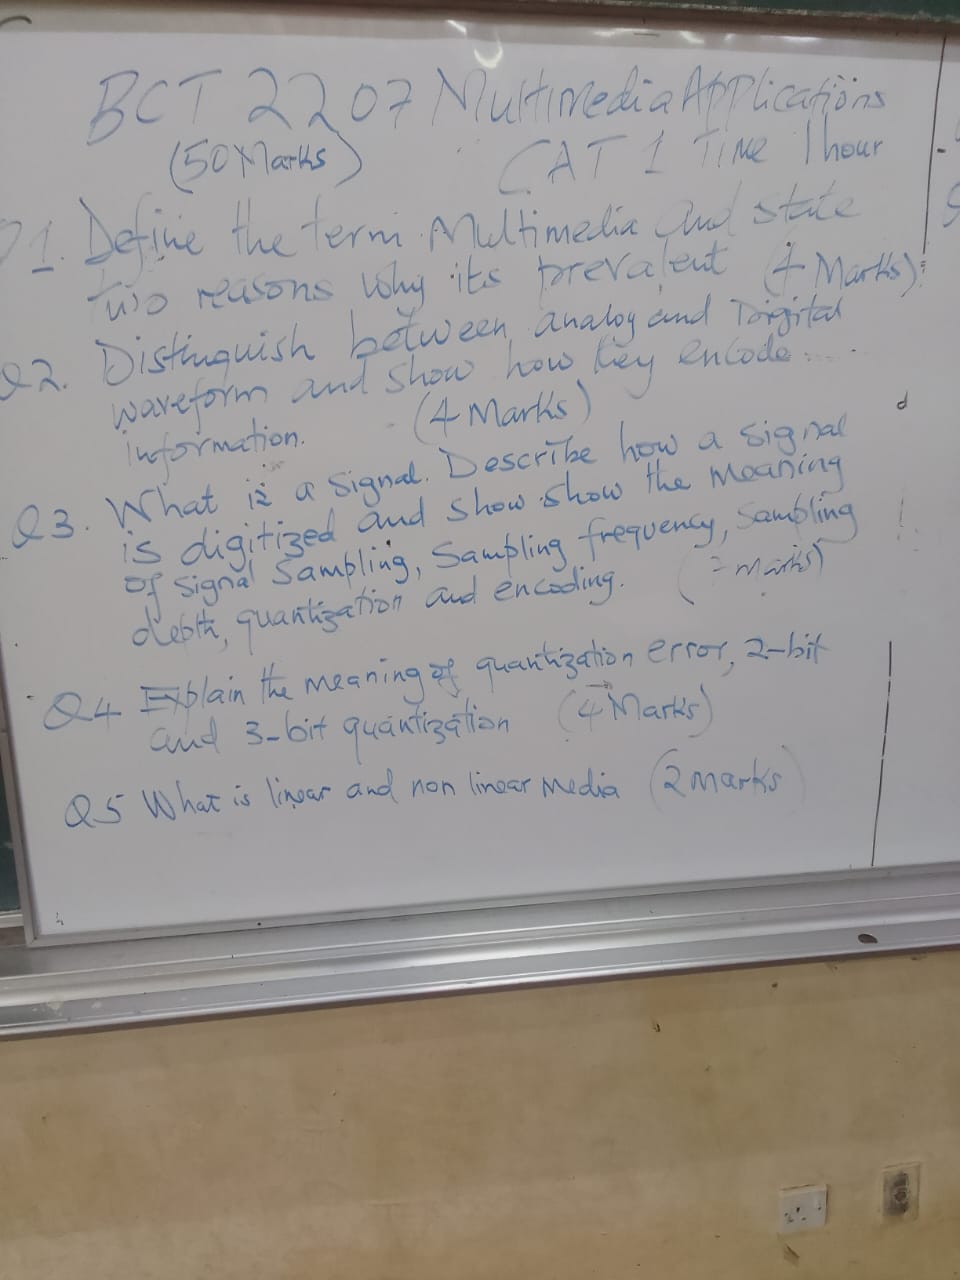 BCT 2207 Multimedia Applications
(50 Marks) CAT 1 Time 1 hour
1. Define the term Multimedia and state
two reasons why its prevalent (4 Marks)
Q2. Distinguish between analog and Digital
waveform and show how they encode
information. (4 Marks)
Q3. What is a signal. Describe how a signal
is digitized and show show the meaning
of signal sampling, Sampling frequency, sampling
depth, quantization and encoding. ( marks)
Q4 Explain the meaning of quantization error, 2-bit
and 3-bit quantization (4 Marks)
Q5 What is linear and non linear media (2 marks)
d